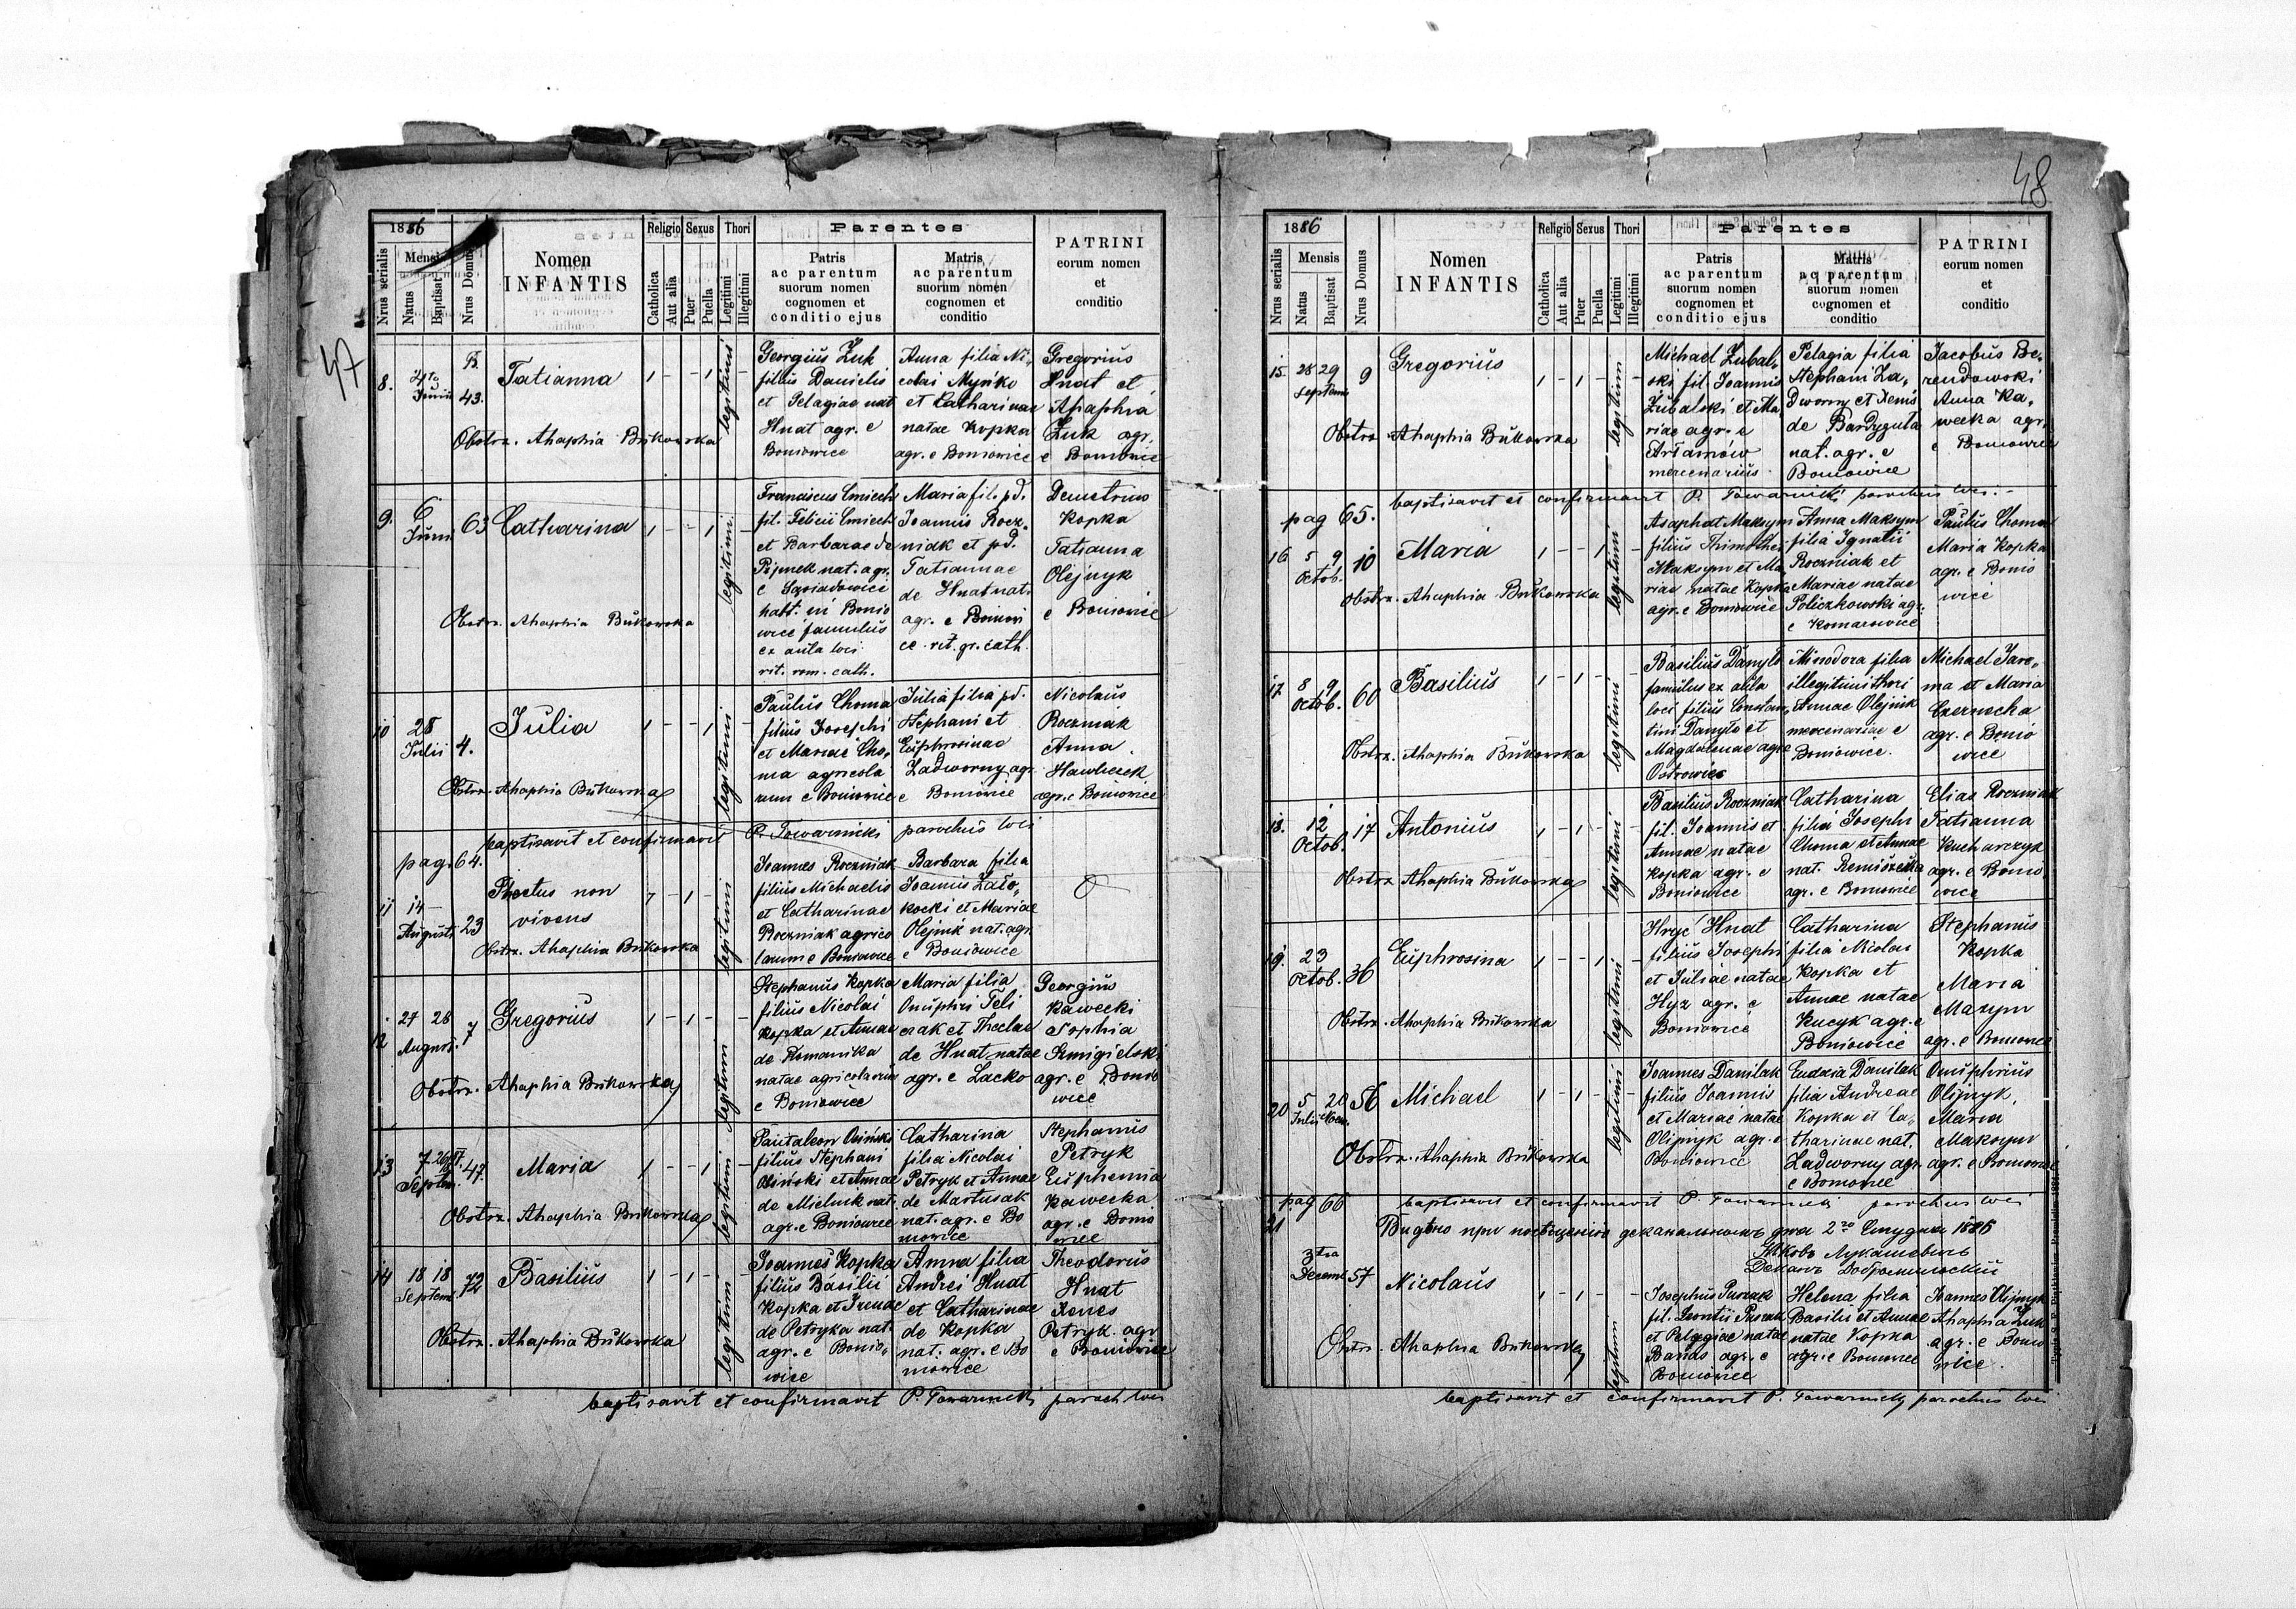 47
1886
Religio Sexus Thori
Parentes
PATRINI
eorum nomen
et
conditio
Nrus serialis
Mensis
Natus
Baptisat
Nrus Domus
Nomen
INFANTIS
Catholica
Aut alia
Puer
Puella
Legitimi
Illegitimi
Patris
ac parentum
suorum nomen
cognomen et
conditio ejus
Matris
ac parentum
suorum nomen
cognomen et
conditio
8.
4to
Junii
43.
Tatianna
1 - - 1 -
legitimi
Georgius Żuk
filius Danielis
et Pelagiae nat
Hnat agr. e
Boniowice
Anna filia Ni-
colai Mynko
et Catharinae
natae Kopka
agr. e Boniowice
Gregorius
Hnat et
Ahaphia
Żuk agr.
e Boniowice
Obstrx. Ahaphia Bukowska
9.
6
Junii
63
Catharina
1 - - 1 -
legitimi
Franciscus
fil. Felicii
et Barbarae de
nat. agr.
e
habt. in Bonio
wice famulus
ex aula loci
rit. rom. cath.
Maria fil. pd.
Joannis Rocz-
niak et pd.
Tatiannae
de Hnat nat.
agr. e Boniowi
ce rit. gr. cath.
Demetrius
Kopka
Tatianna
Olejnyk
e Boniowice
Obstrx. Ahaphia Bukowska
10
28
Julii
4.
Julia
1 - - 1 -
legitimi
Paulus Choma
filius Josephi
et Mariae Cho-
ma agricola
rum e Boniowice
Julia filia pd.
Stephani et
Euphrosinae
Zadworny agr.
e Boniowice
Nicolaus
Roczniak
Anna
Hawliczek
agr. e Boniowice
Obstrx. Ahaphia Bukowska
baptisavit et confirmavit P. Towarnicki parochus loci
pag. 64.
11
14
Augusti
23
Phoetus non
vivens
1 - 1 -
legitimi
Joannes Roczniak
filius Michaelis
et Catharinae
Roczniak agrico
larum e Boniowice
Barbara filia
Joannis Zało-
kocki et Mariae
Olejnik nat. agr.
e Boniowice
Obstrx. Ahaphia Bukowska
12
27 28
August.
7
Gregorius
1 - 1 - -
legitimi
Stephanus Kopka
filius Nicolai
Kopka et Annae
de Romanika
natae agricolarum
e Boniowice
Maria filia
Onuphri Teli
czak et Theclae
de Hnat natae
agr. e Lacko
Georgius
Kawecki
Sophia
Szmigielski
agr. e Bonio
wice
Obstrx. Ahaphia Bukowska
13
7
Septem.
47.
Maria
1 - - 1 -
legitimi
Pantaleon Osiński
filius Stephani
Osiński et Annae
de Mielnik nat.
agr. e Boniowice
Catharina
filia Nicolai
Petryk et Annae
de Martusak
nat. agr. e Bo
niowice
Stephanus
Petryk
Euphemia
Kawecka
agr. e Bonio
wice
Obstrx. Ahaphia Bukowska
14
18 18
Septem.
72
Basilius
1 - 1 - -
legitimi
Joannes Kopka
filius Basilii
Kopka et Irenae
de Petryka nat.
agr. e Bonio-
wice
Anna filia
Andrei Hnat
et Catharinae
de Kopka
nat. agr. e Bo
niowice
Theodorus
Hnat
Xenes
Petryk. agr
e Boniowice
Obstrx. Ahaphia Bukowska
baptisavit et confirmavit P. Towarnicki paroch loci
48
1886
Religio Sexus Thori
Parentes
PATRINI
eorum nomen
et
conditio
Nrus serialis
Mensis
Natus
Baptisat
Nrus Domus
Nomen
INFANTIS
Catholica
Aut alia
Puer
Puella
Legitimi
Illegitimi
Patris
ac parentum
suorum nomen
cognomen et
conditio ejus
Matris
ac parentum
suorum nomen
cognomen et
conditio
15.
28 29
Septem
9
Gregorius
1 - 1 - -
legitimi
Michael Żubal-
ski fil. Joannis
Żubalski et Ma
riae agr. e
Artamów
mercenarius
Pelagia filia
Stephani Za-
dworny et Xenis
de Bardyguła
nat. agr. e
Boniowice
Jacobus Be-
rendowski
Anna Ka-
wecka agr.
e Boniowice
Obstrx. Ahaphia Bukowska
baptisavit et confirmavit P. Towarnicki parochus loci.
pag 65.
16
5 9
Octob.
10
Maria
1 - - 1 -
legitimi
Asaphat Maksym
filius Thimothei
Maksym et Ma
riae natae Kopka
agr. e Boniowice
Anna Maksym
filia Ignatii
Roczniak et
Mariae natae
Policzkowski agr.
e Komarowice
Paulus Choma
Maria Kopka
agr. e Bonio
wice
Obstrx. Ahaphia Bukowska
17
8 9
Octob.
60
Basilius
1 - 1 -
legitimi
Basilius Danyło
famulus ex aula
loci filius Constan-
tini Danyło et
Magdalenae agr. e
Ostrowiec
Minodora filia
illegitimi thori
Annae Olejnik
mercenariae e
Boniowice.
Michael Jare-
ma et Maria
Czernecka
agr. e Bonio
wice
Obstrx. Ahaphia Bukowska
18.
12
Octob.
17
Antonius
1 - 1 - -
legitimi
Basilius Roczniak
fil. Joannis et
Annae natae
Kopka agr. e
Boniowice
Catharina
filia Josephi
Choma et Annae
nat.
agr. e Boniowice
Elias Roczniak
Tatianna
Kucharczyk
agr. e Bonio
wice
Obstrx. Ahaphia Bukowska
19.
23
Octob.
36
Euphrosina
1 - - 1 -
legitimi
Hryć Hnat
filius Josephi
et Juliae natae
Hyz agr. e
Boniowice
Catharina
filia Nicolai
Kopka et
Annae natae
Kucyk agr. e
Boniowice
Stephanus
Kopka
Maria
Maxym
agr. e Boniowice
Obstrx. Ahaphia Bukowska
20
5 20
Julii
56
Michael
1 - 1 - -
legitimi
Joannes Danilak
filius Joannis
et Mariae natae
Olijnyk agr. e
Boniowice
Eudoxia Danilak
filia Andreae
Kopka et Ca-
tharinae nat.
Zadworny agr.
e Boniowice
Onuphrius
Olijnyk,
Maria
Maksym
agr. e Boniowice
Obstrx. Ahaphia Bukowska
pag 66 baptisavit et confirmavit P. Towarnicki parochus loci
Видѣно при посѣщенію деканальномъ дня 2го Студня 1886
Яковъ Лукашевичъ
Деканъ Добромильскій
21
3tia
Decemb
57
Nicolaus
1 - 1 - -
legitimi
Josephus Pusiak
fil. Leontii Pusiak
et Pelagiae natae
Banas agr. e
Boniowice
Helena filia
Basilii et Annae
natae Kopka
agr. e Boniowice
Joannes Olijnyk
Ahaphia Żuk
agr. e Bonio
wice.
Obstr. Ahaphia Bukowska
baptisavit et confirmavit P. Towarnicki parochus loci